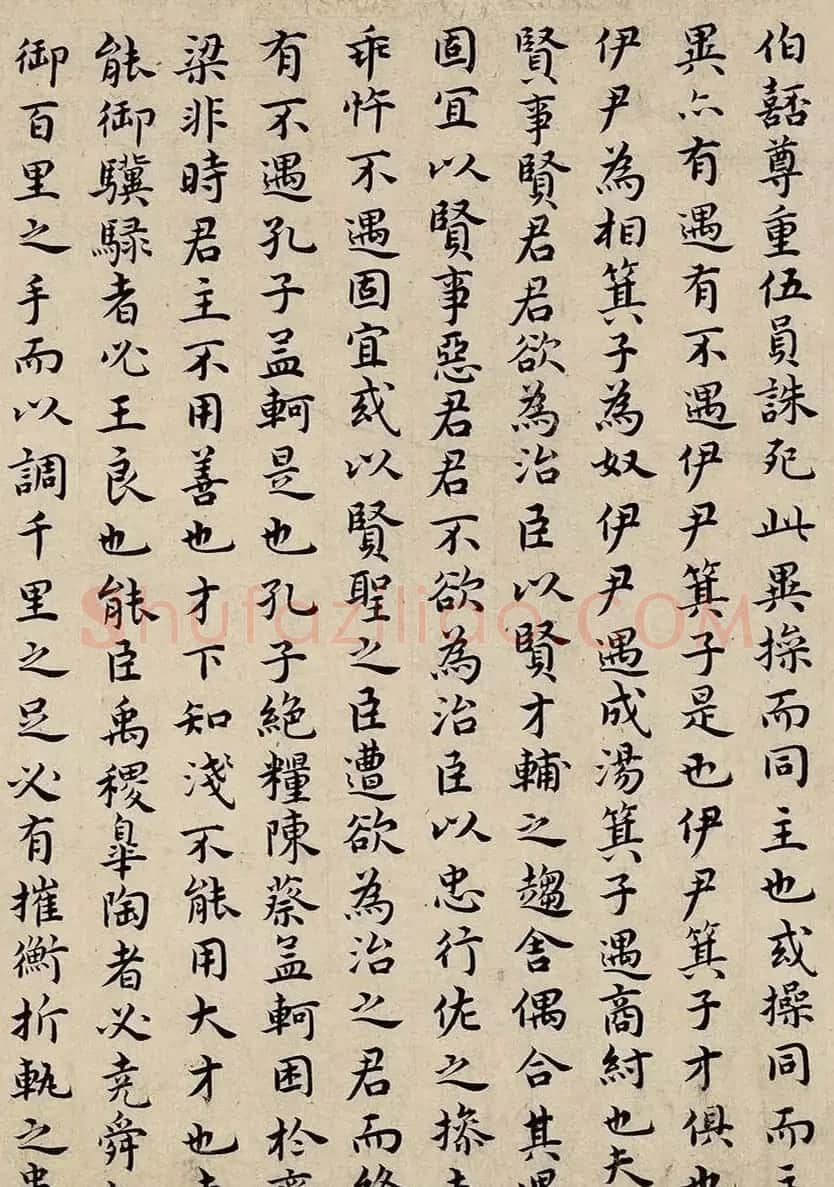 伯嚭尊重伍員誅死此異操而同主也或操同而主
異亦有遇有不遇伊尹箕子是也伊尹箕子才俱也
伊尹為相箕子為奴伊尹遇成湯箕子遇商紂也夫
賢事賢君君欲為治臣以賢才輔之趨舍偶合其遇
固宜以賢事惡君君不欲為治臣以忠行佐之操
乖忤不遇固宜或以賢聖之臣遭欲為治之君而終
有不遇孔子孟軻是也孔子絕糧陳蔡孟軻困於齊
梁非時君主不用善也才下知淺不能用大才也夫
能御驥騄者必王良也能臣禹稷皋陶者必堯舜
御百里之手而以調千里之足必有摧衡折軛之患
Shufaziliao.COM